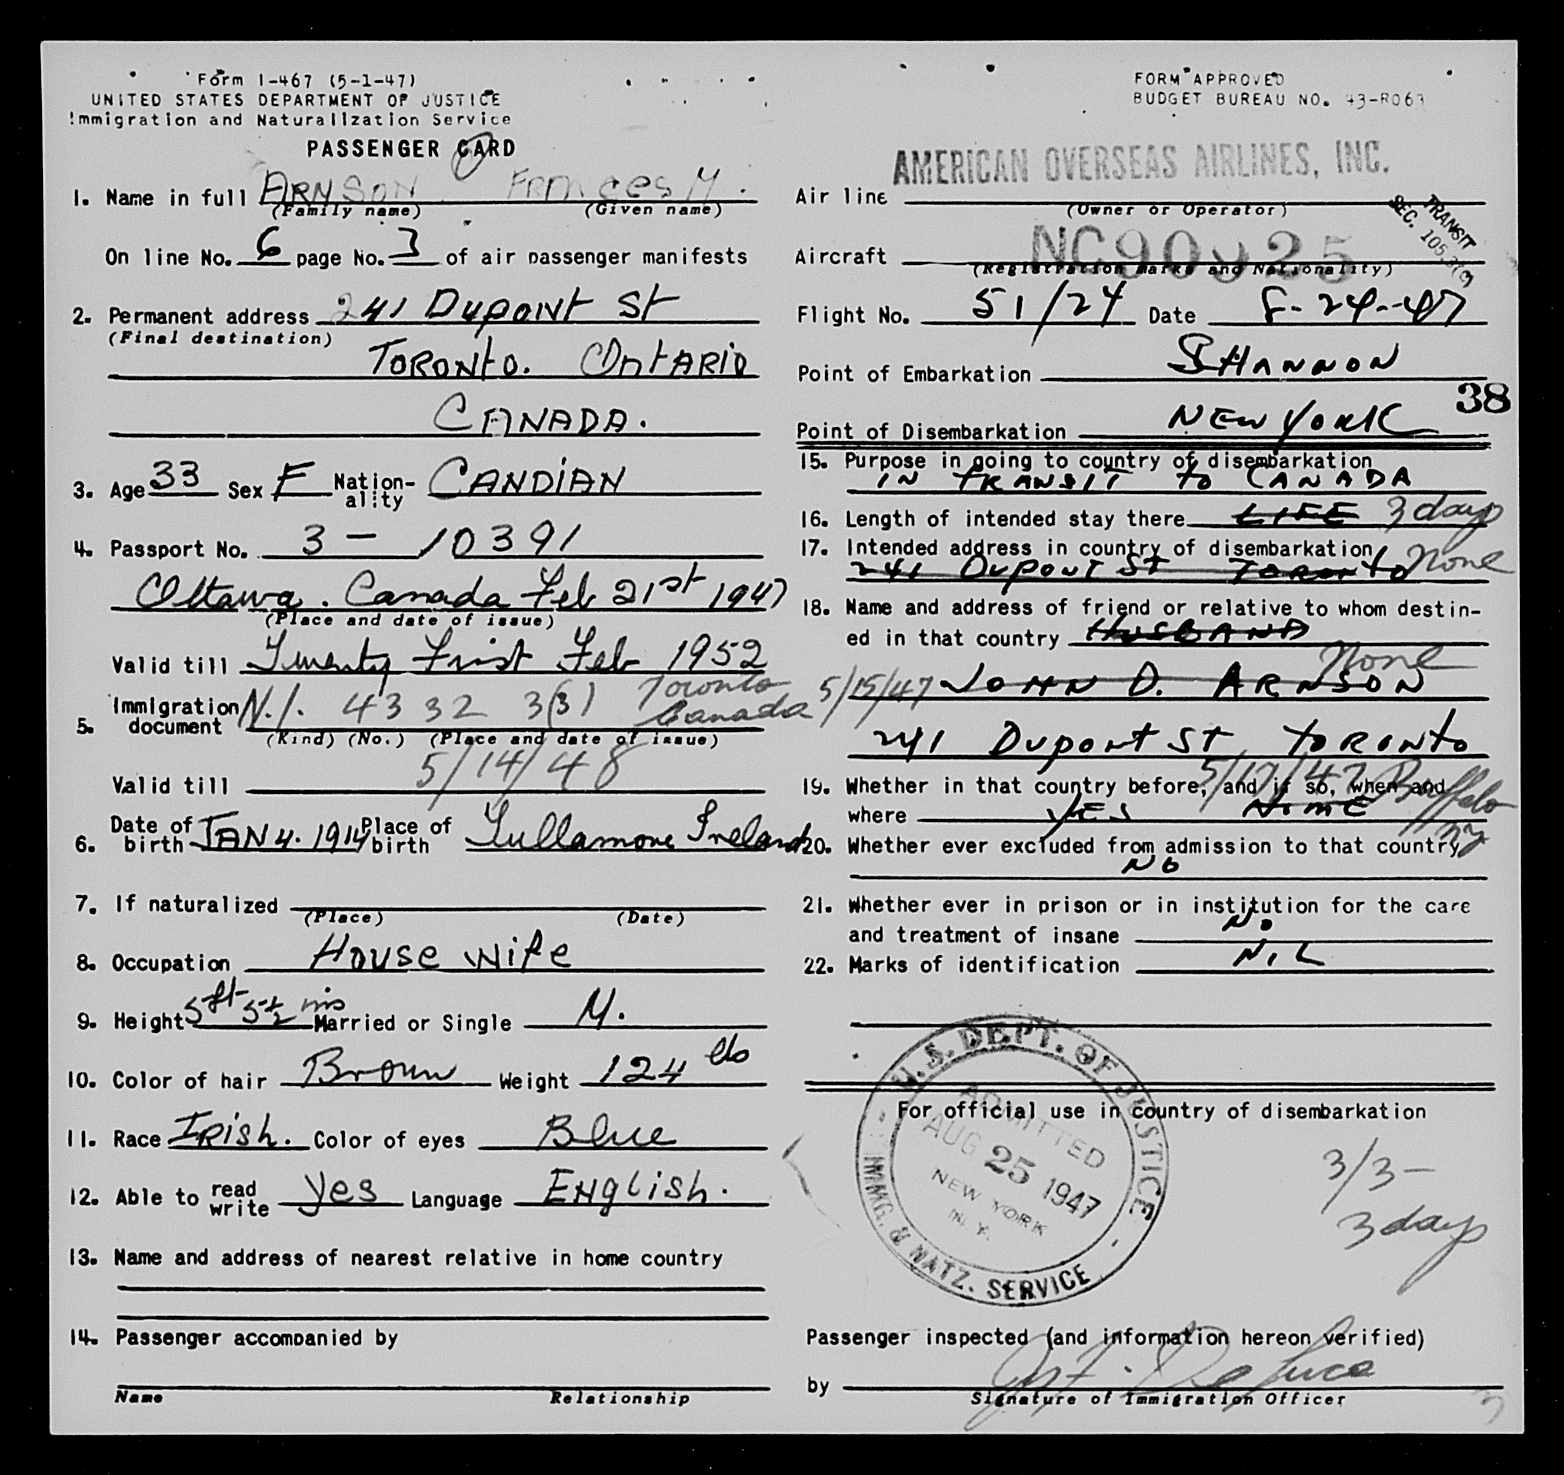 Form I-467 (5-1-47)
UNITED STATES DEPARTMENT OF JUSTICE
Immigration and Naturalization Service
PASSENGER CARD
1. Name in full ARNSON Frances M.
(Family name) (Given name)
On line No. 6 page No. 3 of air passenger manifests
2. Permanent address 241 Dupont St
(Final destination)
Toronto. Ontario
CANADA.
3. Age 33 Sex F Nation-ality CANDIAN
4. Passport No. 3 - 10391
Ottawa. Canada Feb 21st 1947
(Place and date of issue)
Valid till Twenty First Feb 1952
5. Immigration document N.I. 4332 3(3) Toronto Canada 5/15/47
(Kind) (No.) (Place and date of issue)
Valid till 5/14/48
6. Date of birth JAN 4. 1914 Place of birth Tullamore Ireland
7. If naturalized
(Place) (Date)
8. Occupation House wife
9. Height 5ft 5½ ins Married or Single M.
10. Color of hair Brown Weight 124 lbs
11. Race Irish. Color of eyes Blue
12. Able to read write Yes Language English.
13. Name and address of nearest relative in home country
14. Passenger accompanied by
Name Relationship
FORM APPROVED
BUDGET BUREAU NO. 43-R063
AMERICAN OVERSEAS AIRLINES, INC.
Air line
(Owner or Operator)
TRANSIT
SEC. 105.3(c)
Aircraft NC90925
(Registration marks and Nationality)
Flight No. 51/24 Date 8-24-47
Point of Embarkation SHANNON
38
Point of Disembarkation NEW YORK
15. Purpose in going to country of disembarkation
IN TRANSIT TO CANADA
16. Length of intended stay there LIFE 3 days
17. Intended address in country of disembarkation
241 Dupont St Toronto None
18. Name and address of friend or relative to whom destin-
ed in that country HUSBAND
None
JOHN D. ARNSON
241 Dupont St, Toronto
19. Whether in that country before, and if so, when and
5/17/47 Buffalo NY
where YES
20. Whether ever excluded from admission to that country
NO
21. Whether ever in prison or in institution for the care
and treatment of insane No
22. Marks of identification NIL
For official use in country of disembarkation
U.S. DEPT. OF JUSTICE
ADMITTED
AUG 25 1947
NEW YORK
N.Y.
IMMG. & NATZ. SERVICE
3/3-
3 days
Passenger inspected (and information hereon verified)
by
Signature of Immigration Officer